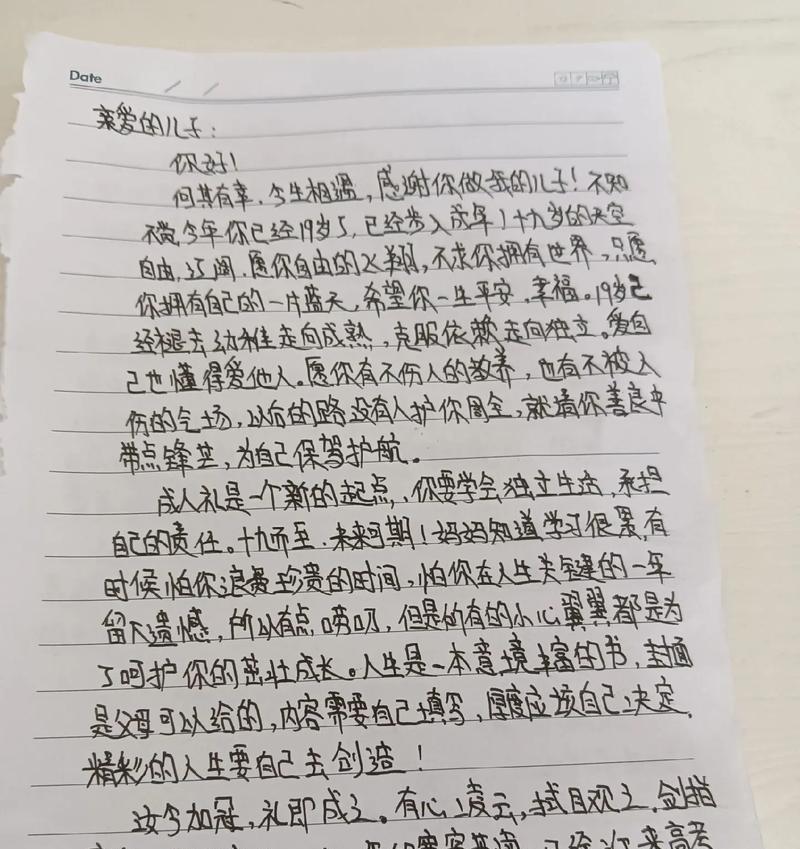 Date
亲爱的儿子：
你好！
何其有幸，今生相遇，感谢你做我的儿子！不知
不觉今年你已经19岁了，已经步入成年！十九岁的天空
自由，辽阔，愿你自由的飞翔，不求你拥有世界，只愿
你拥有自己的一片蓝天，希望你一生平安，幸福。19岁已
经褪去幼稚走向成熟，克服依赖走向独立。爱自
己也懂得爱他人。愿你有不伤人的教养，也有不被人
伤的气场，以后的路没有人护你周全，就请你善良中
带点锋芒，为自己保驾护航。
成人礼是一个新的起点，你要学会独立生活，承担
自己的责任。十九而至，未来可期！妈妈知道学习很累，有
时候怕你浪费珍贵的时间，怕你在人生关键的一年
留下遗憾，所以有点唠叨，但是所有的小心翼翼都是为
了呵护你的茁壮成长。人生是一本意境丰富的书，封面
是父母可以给的，内容需要自己填写，厚度应该自己决定，
精彩的人生要自己去创造！
汝今加冠，礼即成之。有心凌云，拭目观之，剑指
来高考